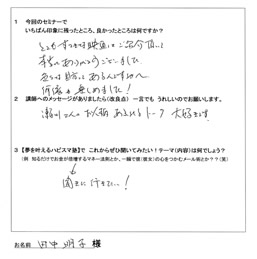 1 今回のセミナーで
いちばん印象に残ったところ、良かったところは何ですか?
とてもすてきな映画をご紹介頂いて
本当にありがとうございました。
2 講師へのメッセージがありましたら(改良点) 一言でも うれしいのでお願いします。
あふれるトーク 大好きです
3 【夢を叶えるハピスマ塾】で これからぜひ聞いてみたい!テーマ(内容)は何でしょう?
(例 知るだけでお金が倍増するマネー法則とか、一瞬で彼(彼女)の心をつかむメール術とか??(笑)
聞きに行きたい…!
お名前 田中 明子 様